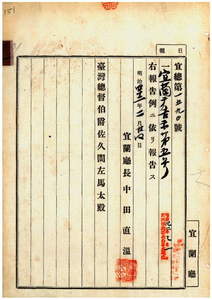 151
報日
宜總第一五九〇號
一宜蘭廳告示第五號
右報告例ニ依リ報告ス
明治四十三年二月廿四日
宜蘭廳長中田直溫
臺灣總督伯爵佐久間左馬太殿
宜蘭廳